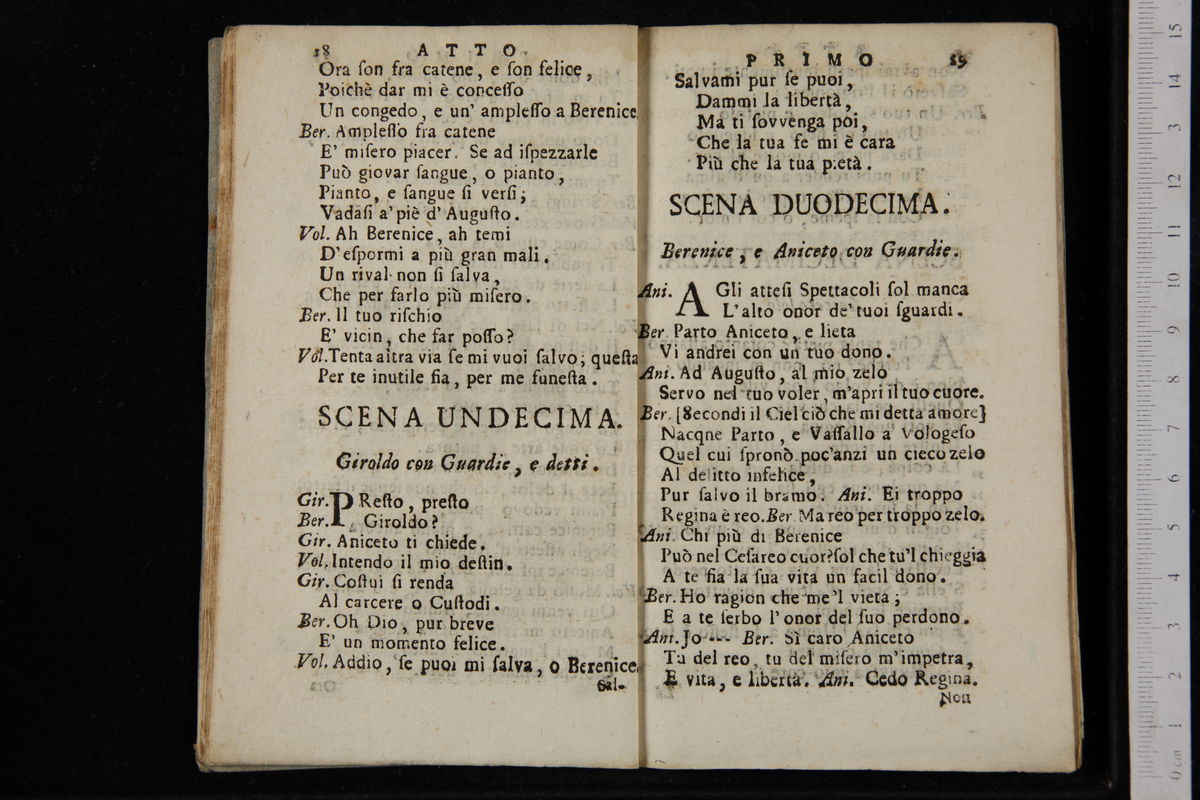 18 ATTO
Ora ſon fra catene, e ſon felice,
Poichè dar mi è conceſſo
Un congedo, e un' ampleſſo a Berenice.
Ber. Ampleſſo fra catene
E' miſero piacer. Se ad iſpezzarle
Può giovar ſangue, o pianto,
Pianto, e ſangue ſi verſi;
Vadaſi a' piè d' Auguſto.
Vol. Ah Berenice, ah temi
D'eſpormi a più gran mali.
Un rival non ſi ſalva,
Che per farlo più miſero.
Ber. Il tuo riſchio
E' vicin, che far poſſo?
Vol. Tenta altra via ſe mi vuoi ſalvo; queſta
Per te inutile fia, per me funeſta.
SCENA UNDECIMA.
Giroldo con Guardie, e detti.
Gir. PReſto, preſto
Ber. Giroldo?
Gir. Aniceto ti chiede.
Vol. Intendo il mio deſtin.
Gir. Coſtui ſi renda
Al carcere o Cuſtodi.
Ber. Oh Dio, pur breve
E' un momento felice.
Vol. Addio, ſe puoi mi ſalva, o Berenice.
Sal-
PRIMO 19
Salvami pur ſe puoi,
Dammi la libertà,
Ma ti ſovvenga poi,
Che la tua fe mi è cara
Più che la tua pietà.
SCENA DUODECIMA.
Berenice, e Aniceto con Guardie.
Ani. AGli atteſi Spettacoli ſol manca
L'alto onor de' tuoi ſguardi.
Ber Parto Aniceto, e lieta
Vi andrei con un tuo dono.
Ani. Ad Auguſto, al mio zelo
Servo nel tuo voler, m'apri il tuo cuore.
Ber. [Secondi il Ciel ciò che mi detta amore]
Nacqne Parto, e Vaſſallo a Vologeſo
Quel cui ſpronò poc'anzi un cieco zelo
Al delitto infelice,
Pur ſalvo il bramo. Ani. Ei troppo
Regina è reo. Ber Ma reo per troppo zelo.
Ani. Chi più di Berenice
Può nel Ceſareo cuor? ſol che tu'l chieggia
A te fia la ſua vita un facil dono.
Ber. Ho ragion che me'l vieta;
E a te ſerbo l'onor del ſuo perdono.
Ani. Jo --- Ber. Sì caro Aniceto
Tu del reo, tu del miſero m'impetra,
E vita, e libertà. Ani. Cedo Regina.
Non
15
14
13
12
11
10
9
8
7
6
5
4
3
2
1
0 cm